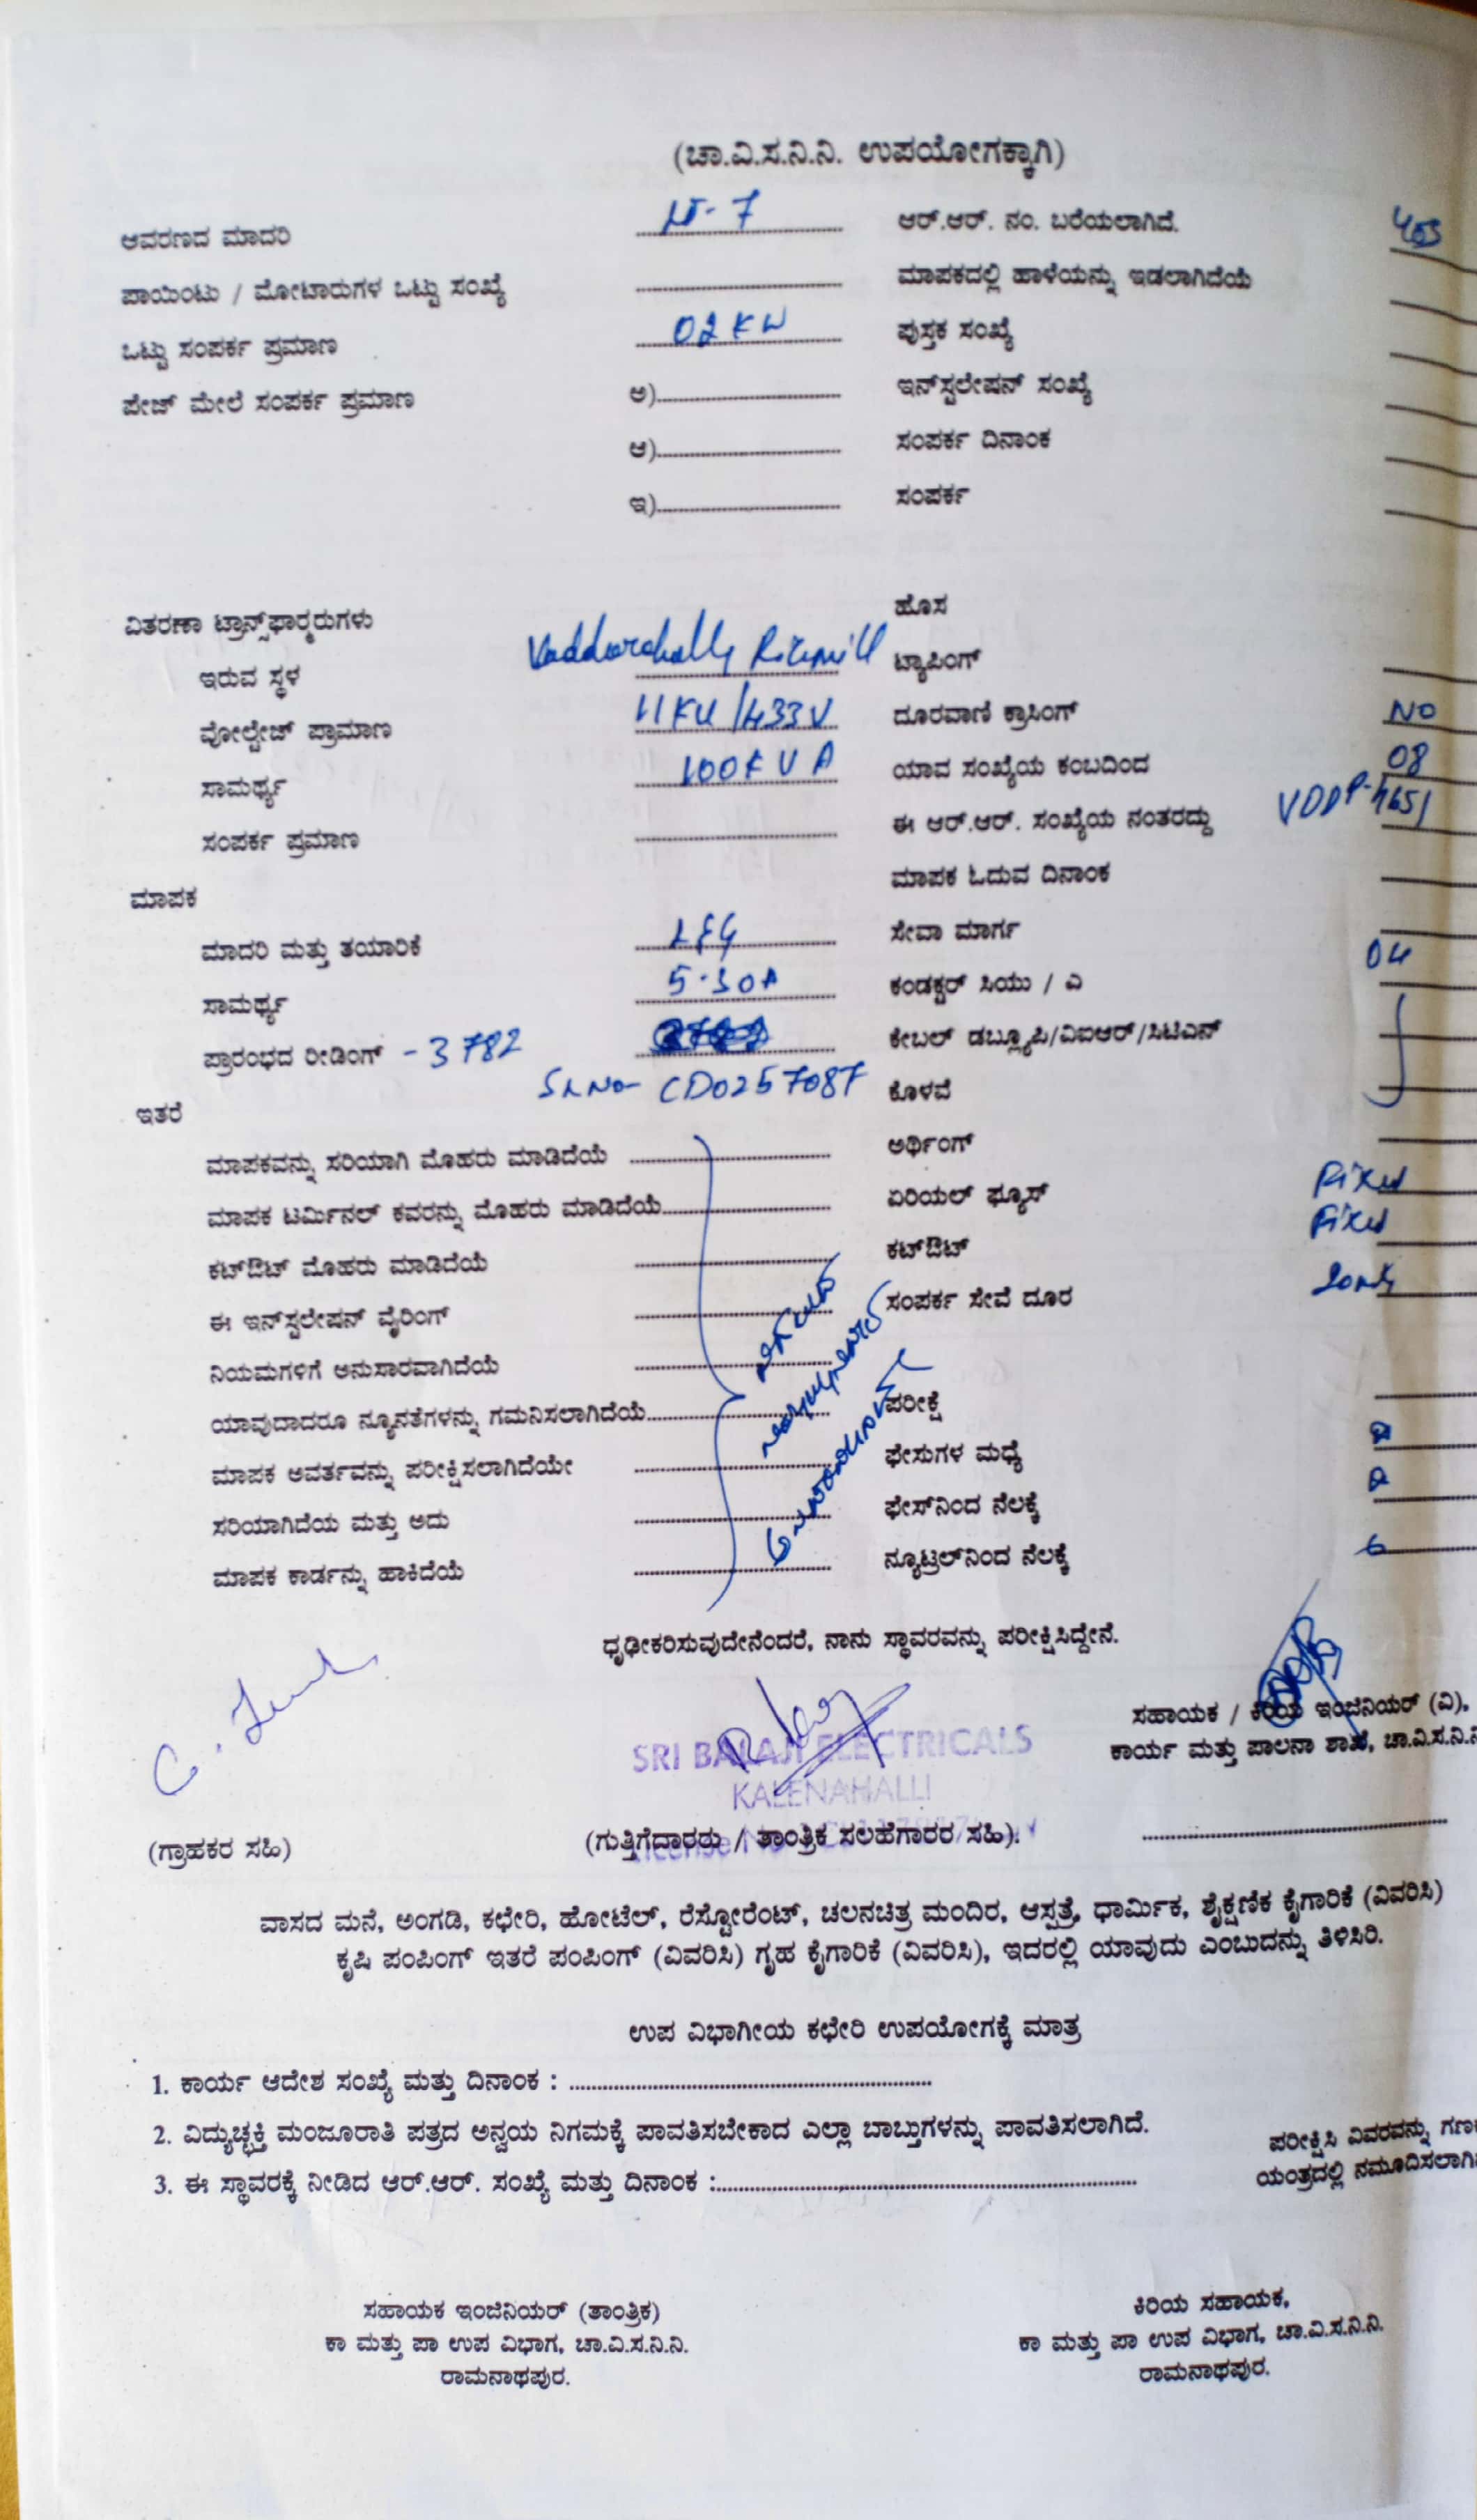 (ಚಾ.ವಿ.ಸ.ನಿ.ನಿ. ಉಪಯೋಗಕ್ಕಾಗಿ)
ಆವರಣದ ಮಾದರಿ LT-7 ಆರ್.ಆರ್. ನಂ. ಬರೆಯಲಾಗಿದೆ.
ಪಾಯಿಂಟು / ಮೋಟಾರುಗಳ ಒಟ್ಟು ಸಂಖ್ಯೆ ಮಾಪಕದಲ್ಲಿ ಹಾಳೆಯನ್ನು ಇಡಲಾಗಿದೆಯೆ
ಒಟ್ಟು ಸಂಪರ್ಕ ಪ್ರಮಾಣ 02 KW ಪುಸ್ತಕ ಸಂಖ್ಯೆ
ಪೇಜ್ ಮೇಲೆ ಸಂಪರ್ಕ ಪ್ರಮಾಣ ಅ) ಇನ್‌ಸ್ಟಲೇಷನ್ ಸಂಖ್ಯೆ
ಆ) ಸಂಪರ್ಕ ದಿನಾಂಕ
ಇ) ಸಂಪರ್ಕ
ವಿತರಣಾ ಟ್ರಾನ್ಸ್‌ಫಾರ್‍ಮರುಗಳು ಹೊಸ
ಇರುವ ಸ್ಥಳ Vaddarahally Ricemill ಟ್ಯಾಪಿಂಗ್
ವೋಲ್ಟೇಜ್ ಪ್ರಾಮಾಣ 11KV/433V ದೂರವಾಣಿ ಕ್ರಾಸಿಂಗ್ NO
ಸಾಮರ್ಥ್ಯ 100KVA ಯಾವ ಸಂಖ್ಯೆಯ ಕಂಬದಿಂದ 08
ಸಂಪರ್ಕ ಪ್ರಮಾಣ ಈ ಆರ್.ಆರ್. ಸಂಖ್ಯೆಯ ನಂತರದ್ದು VDDP-4651
ಮಾಪಕ ಮಾಪಕ ಓದುವ ದಿನಾಂಕ
ಮಾದರಿ ಮತ್ತು ತಯಾರಿಕೆ L&G ಸೇವಾ ಮಾರ್ಗ
ಸಾಮರ್ಥ್ಯ 5-30A ಕಂಡಕ್ಟರ್ ಸಿಯು / ಎ 04
ಪ್ರಾರಂಭದ ರೀಡಿಂಗ್ - 3782 ಕೇಬಲ್ ಡಬ್ಲ್ಯೂಪಿ/ವಿಐಆರ್/ಸಿಟಿಎನ್
SL NO- CD0257087 ಕೊಳವೆ
ಇತರೆ
ಮಾಪಕವನ್ನು ಸರಿಯಾಗಿ ಮೊಹರು ಮಾಡಿದೆಯೆ ಅರ್ಥಿಂಗ್
ಮಾಪಕ ಟರ್ಮಿನಲ್ ಕವರನ್ನು ಮೊಹರು ಮಾಡಿದೆಯೆ ಏರಿಯಲ್ ಫ್ಯೂಸ್ Fixed
ಕಟ್‌ಔಟ್ ಮೊಹರು ಮಾಡಿದೆಯೆ ಕಟ್‌ಔಟ್ Fixed
ಈ ಇನ್‌ಸ್ಟಲೇಷನ್ ವೈರಿಂಗ್ ಸಂಪರ್ಕ ಸೇವೆ ದೂರ
ನಿಯಮಗಳಿಗೆ ಅನುಸಾರವಾಗಿದೆಯೆ
ಯಾವುದಾದರೂ ನ್ಯೂನತೆಗಳನ್ನು ಗಮನಿಸಲಾಗಿದೆಯೆ ಪರೀಕ್ಷೆ
ಮಾಪಕ ಅವರ್ತವನ್ನು ಪರೀಕ್ಷಿಸಲಾಗಿದೆಯೇ ಫೇಸುಗಳ ಮಧ್ಯೆ
ಸರಿಯಾಗಿದೆಯ ಮತ್ತು ಅದು ಫೇಸ್‌ನಿಂದ ನೆಲಕ್ಕೆ
ಮಾಪಕ ಕಾರ್ಡನ್ನು ಹಾಕಿದೆಯೆ ನ್ಯೂಟ್ರಲ್‌ನಿಂದ ನೆಲಕ್ಕೆ
ಧೃಢೀಕರಿಸುವುದೇನೆಂದರೆ, ನಾನು ಸ್ಥಾವರವನ್ನು ಪರೀಕ್ಷಿಸಿದ್ದೇನೆ.
ಸಹಾಯಕ / ಕಿರಿಯ ಇಂಜಿನಿಯರ್ (ವಿ),
SRI BALAJI ELECTRICALS ಕಾರ್ಯ ಮತ್ತು ಪಾಲನಾ ಶಾಖೆ, ಚಾ.ವಿ.ಸ.ನಿ.ನಿ
KALENAHALLI
(ಗ್ರಾಹಕರ ಸಹಿ) (ಗುತ್ತಿಗೆದಾರರು / ತಾಂತ್ರಿಕ ಸಲಹೆಗಾರರ ಸಹಿ).
ವಾಸದ ಮನೆ, ಅಂಗಡಿ, ಕಛೇರಿ, ಹೋಟೆಲ್, ರೆಸ್ಟೋರೆಂಟ್, ಚಲನಚಿತ್ರ ಮಂದಿರ, ಆಸ್ಪತ್ರೆ, ಧಾರ್ಮಿಕ, ಶೈಕ್ಷಣಿಕ ಕೈಗಾರಿಕೆ (ವಿವರಿಸಿ)
ಕೃಷಿ ಪಂಪಿಂಗ್ ಇತರೆ ಪಂಪಿಂಗ್ (ವಿವರಿಸಿ) ಗೃಹ ಕೈಗಾರಿಕೆ (ವಿವರಿಸಿ), ಇದರಲ್ಲಿ ಯಾವುದು ಎಂಬುದನ್ನು ತಿಳಿಸಿರಿ.
ಉಪ ವಿಭಾಗೀಯ ಕಛೇರಿ ಉಪಯೋಗಕ್ಕೆ ಮಾತ್ರ
1. ಕಾರ್ಯ ಆದೇಶ ಸಂಖ್ಯೆ ಮತ್ತು ದಿನಾಂಕ :
2. ವಿದ್ಯುಚ್ಛಕ್ತಿ ಮಂಜೂರಾತಿ ಪತ್ರದ ಅನ್ವಯ ನಿಗಮಕ್ಕೆ ಪಾವತಿಸಬೇಕಾದ ಎಲ್ಲಾ ಬಾಬ್ತುಗಳನ್ನು ಪಾವತಿಸಲಾಗಿದೆ. ಪರೀಕ್ಷಿಸಿ ವಿವರವನ್ನು
3. ಈ ಸ್ಥಾವರಕ್ಕೆ ನೀಡಿದ ಆರ್.ಆರ್. ಸಂಖ್ಯೆ ಮತ್ತು ದಿನಾಂಕ : ಯಂತ್ರದಲ್ಲಿ
ಸಹಾಯಕ ಇಂಜಿನಿಯರ್ (ತಾಂತ್ರಿಕ) ಕಿರಿಯ ಸಹಾಯಕ,
ಕಾ ಮತ್ತು ಪಾ ಉಪ ವಿಭಾಗ, ಚಾ.ವಿ.ಸ.ನಿ.ನಿ. ಕಾ ಮತ್ತು ಪಾ ಉಪ ವಿಭಾಗ, ಚಾ.ವಿ.ಸ.ನಿ.ನಿ.
ರಾಮನಾಥಪುರ. ರಾಮನಾಥಪುರ.